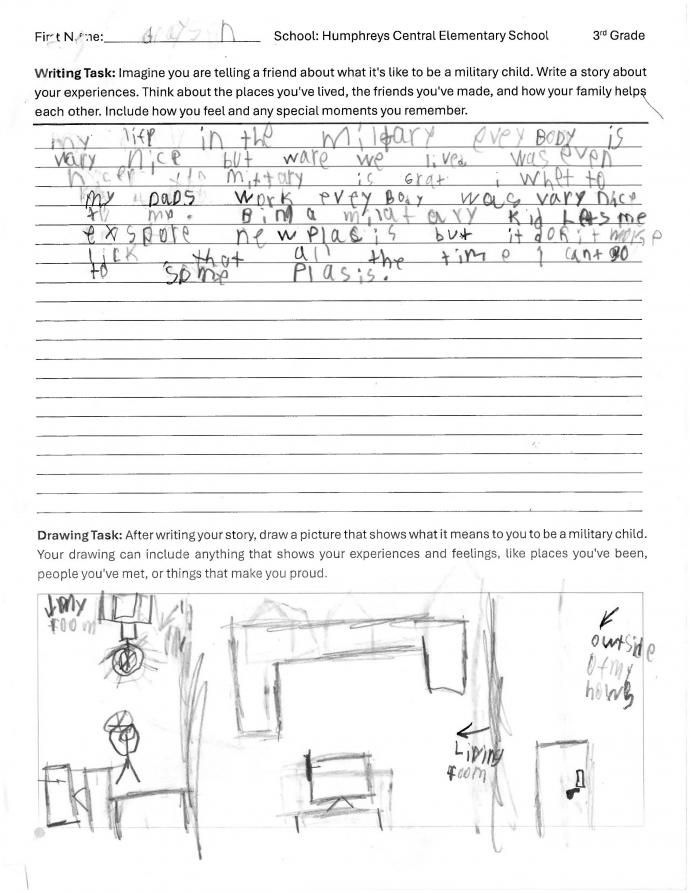 First Name: Grayson School: Humphreys Central Elementary School 3rd Grade
Writing Task: Imagine you are telling a friend about what it's like to be a military child. Write a story about
your experiences. Think about the places you've lived, the friends you've made, and how your family helps
each other. Include how you feel and any special moments you remember.
my life in the Military evey BODY is
vary nice but ware we lived was even
nicer in mittary is Grat i whet to
my DADS work evey Body was vary nice
to me. Bing a milatary Kid LAts me
exspore new plasis but it don't
lick that all the time I cant go
to some Plasis.
Drawing Task: After writing your story, draw a picture that shows what it means to you to be a military child.
Your drawing can include anything that shows your experiences and feelings, like places you've been,
people you've met, or things that make you proud.
my
room
Living
room
outside
of my
hows